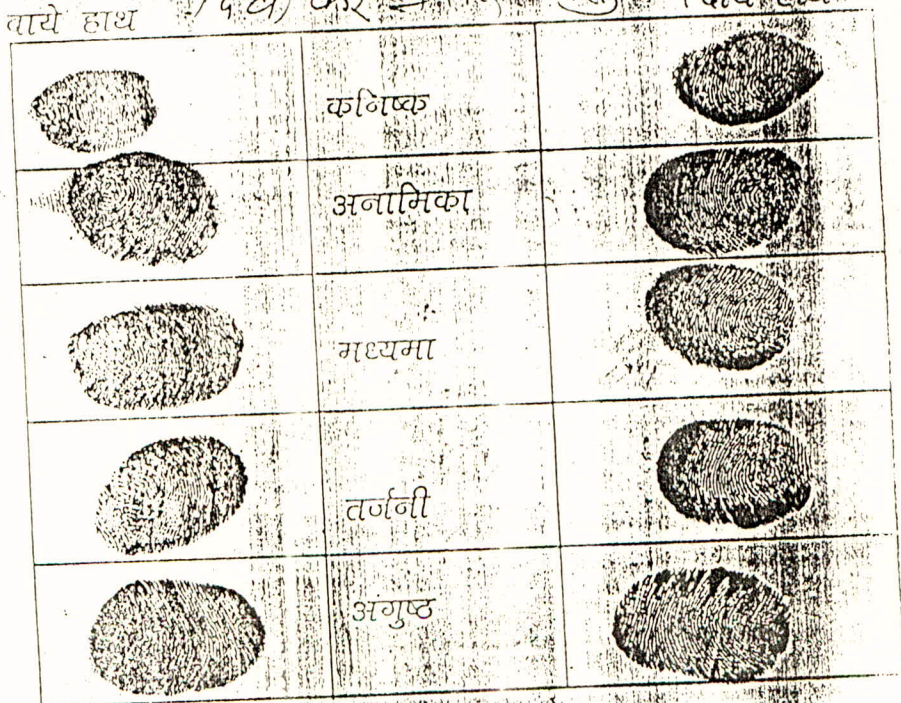 वाये हाथ
कनिष्क
अनामिका
मध्यमा
तर्जनी
अगुष्ठ